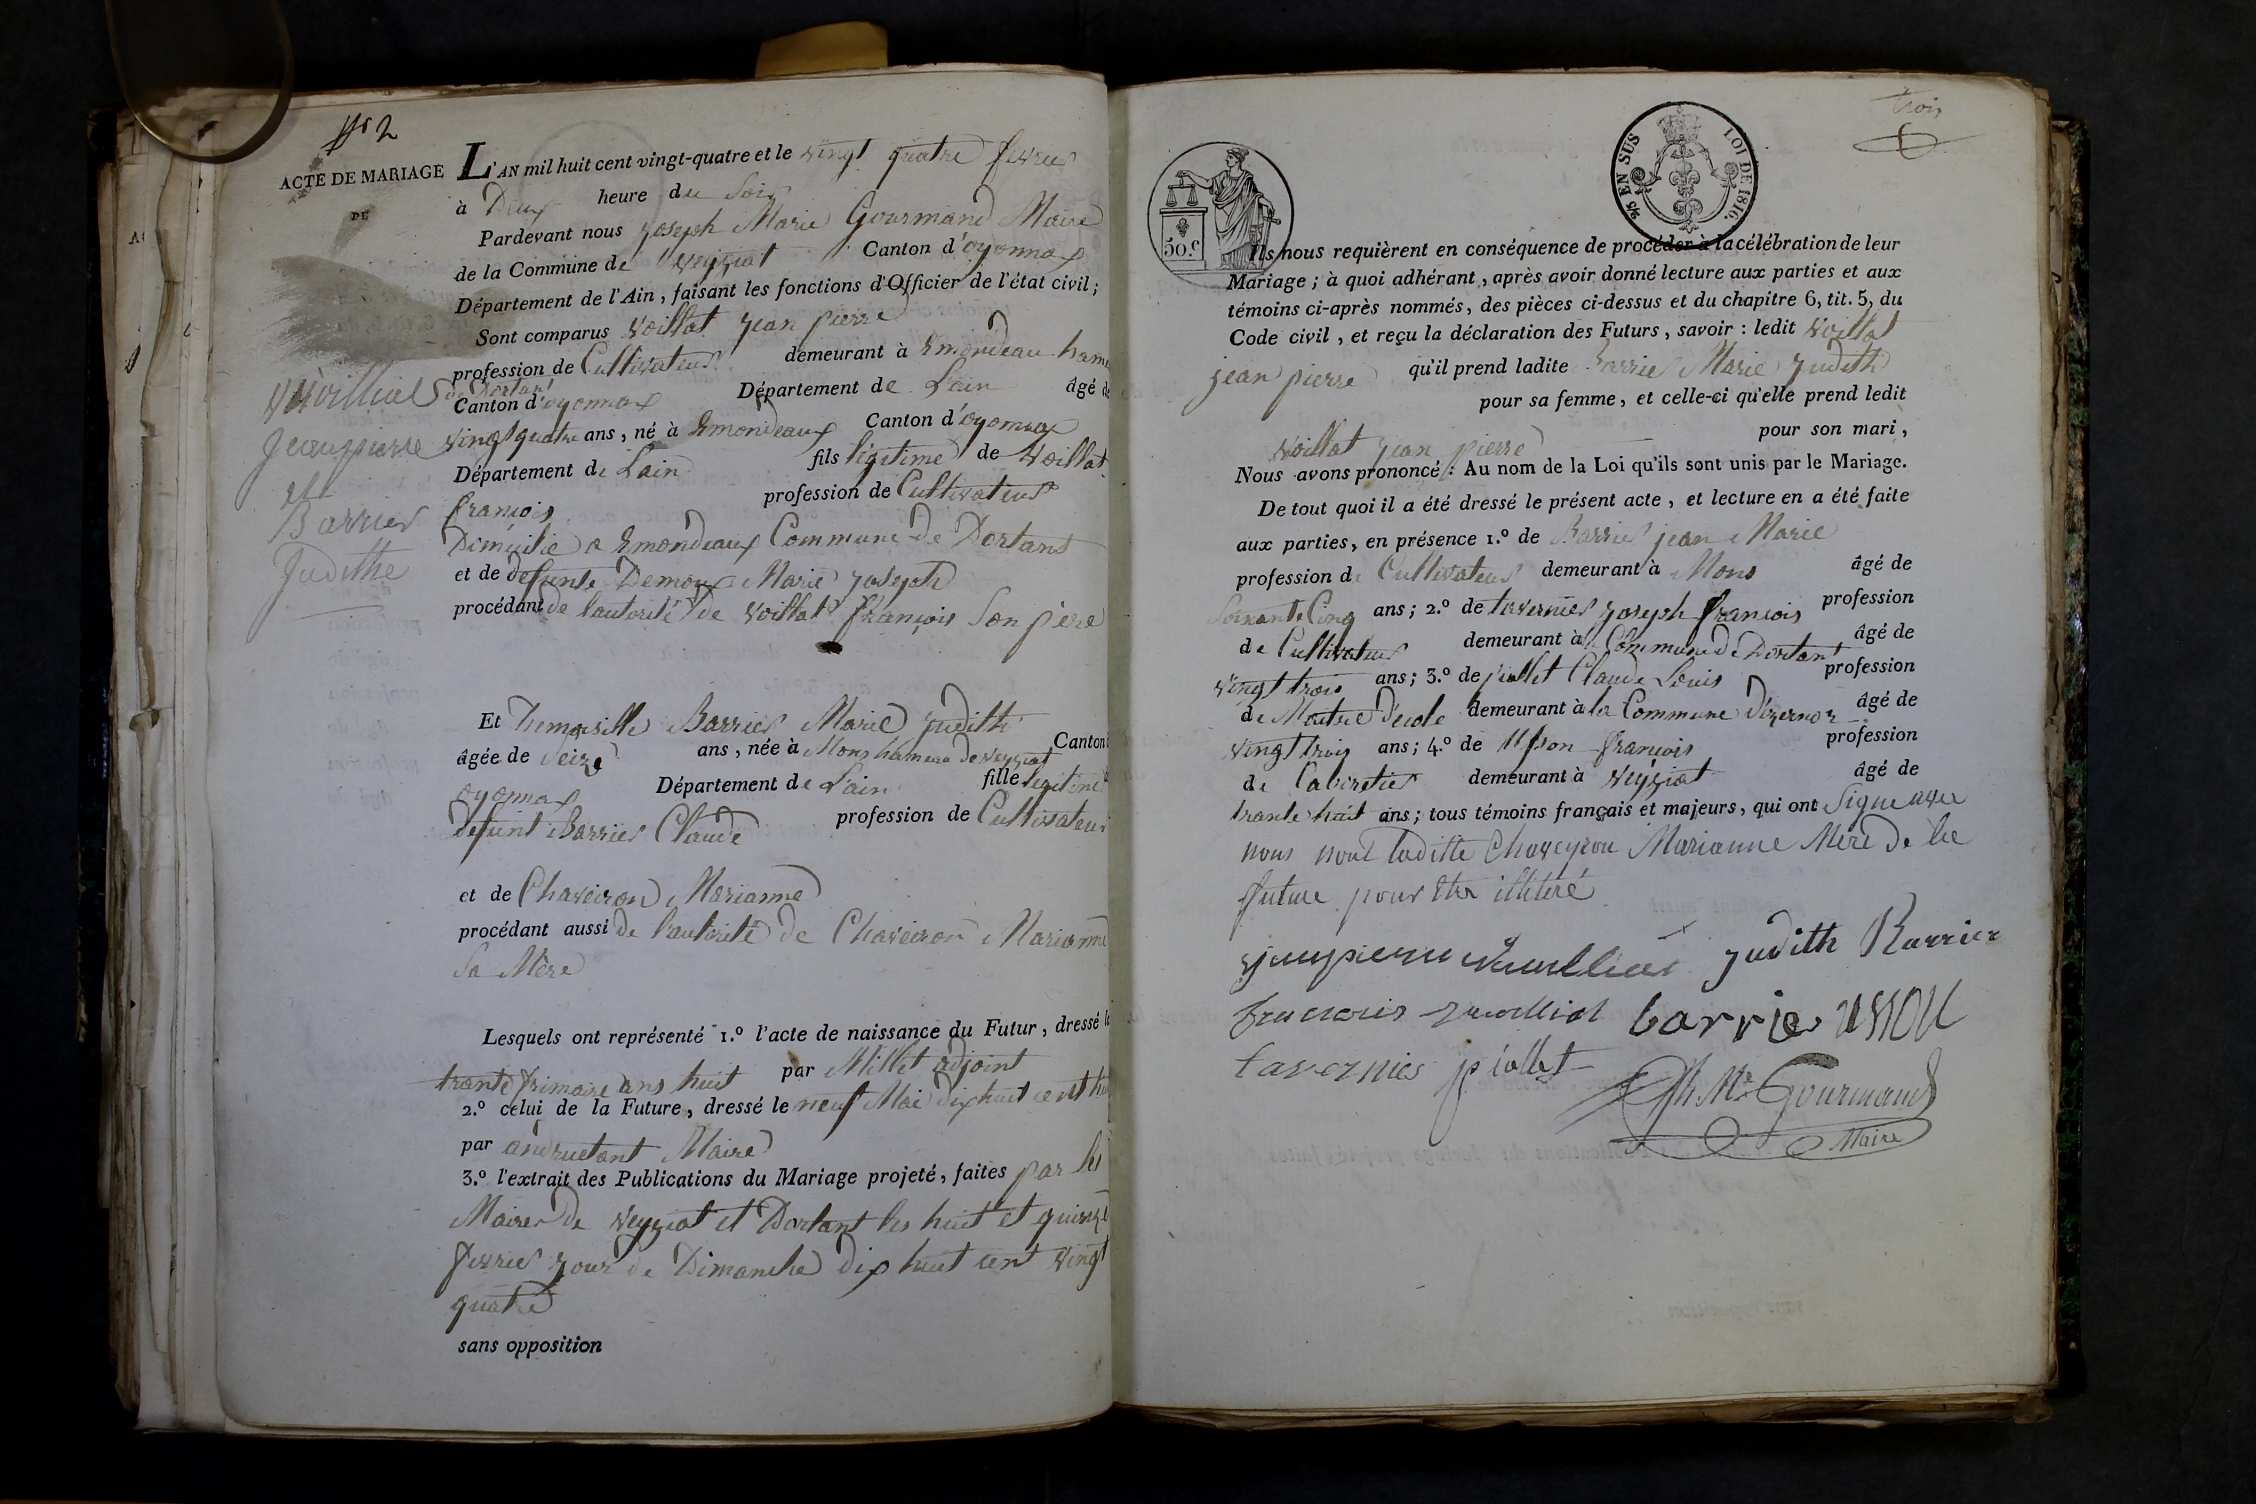 N° 2
ACTE DE MARIAGE
DE
Vuoilliat
Jeanpierre
et
Barrier
Judithe
L'AN mil huit cent vingt-quatre et le vingt quatre fevrier
à Deux heure du Soir
Pardevant nous joseph Marie Gourmand Maire
de la Commune de veyziat Canton d'oyonnax
Département de l'Ain, faisant les fonctions d'Officier de l'état civil;
Sont comparus Voillat jean pierre
profession de Cultivateur demeurant à Emondeau hameau
de Dortant
Canton d'oyonnax Département de Lain âgé de
vingt quatre ans, né à Emondeaux Canton d'oyonnax
Département de Lain fils légitime de Voillat
françois profession de Cultivateur
Domicilié a Emondeaux Commune de Dortant
et de defunte Demoux Marie joseph
procédant de l'autorité de voillat françois Son père
Et Demoiselle Barrier Marie judith
âgée de Seize ans, née à Mons hameau de veyziat Canton
oyonnax Département de Lain fille légitime
défunt Barrier Claude profession de Cultivateur
et de Chaveiron Marianne
procédant aussi de l'autorité de Chaveiron Marianne
Sa Mère
Lesquels ont représenté 1.º l'acte de naissance du Futur, dressé le
trante frimaire ans huit par Millet adjoint
2.º celui de la Future, dressé le neuf Mai dix huit cent huit
par andruetant Maire
3.º l'extrait des Publications du Mariage projeté, faites par les
Maires de Veyziat et Dortant les huit et quinze
fevrier jour de Dimanche dix huit cent vingt
quatre
sans opposition
trois
50.c
25 EN SUS LOI DE 1816.
Ils nous requièrent en conséquence de procéder à la célébration de leur
Mariage; à quoi adhérant, après avoir donné lecture aux parties et aux
témoins ci-après nommés, des pièces ci-dessus et du chapitre 6, tit. 5, du
Code civil, et reçu la déclaration des Futurs, savoir: ledit Voillat
jean pierre qu'il prend ladite Barrier Marie Judith
pour sa femme, et celle-ci qu'elle prend ledit
voillat jean pierre pour son mari,
Nous avons prononcé: Au nom de la Loi qu'ils sont unis par le Mariage.
De tout quoi il a été dressé le présent acte, et lecture en a été faite
aux parties, en présence 1.º de Barrier jean Marie
profession de Cultivateur demeurant à Mons âgé de
Soixante Cinq ans; 2.º de tavernier joseph françois profession
de Cultivateur demeurant à Commune de Dortant âgé de
vingt trois ans; 3.º de piollet Claude Louis profession
de Maitre d'ecole demeurant à la Commune d'izernor âgé de
vingt trois ans; 4.º de Usson françois profession
de Cabaretier demeurant à Veyziat âgé de
trante huit ans; tous témoins français et majeurs, qui ont Signe avec
nous nont laditte Chaveyron Marianne Mère de la
future pour être illitéré
jeanpierre vuoilliat judith Barrier
francois vuoilliat barrier usson
tavernier piollet
Jph Mie Gourmand
Maire